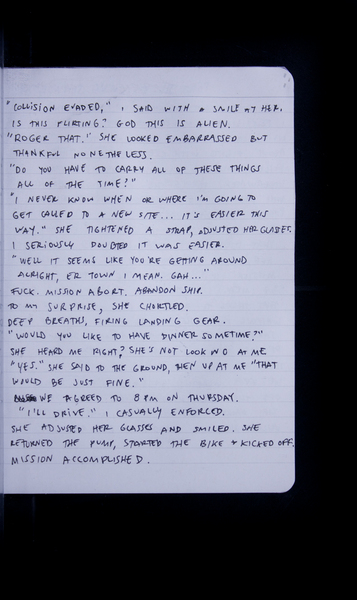 "COLLISION EVADED," I SAID WITH A SMILE AT HER.
IS THIS FLIRTING? GOD THIS IS ALIEN.
"ROGER THAT." SHE LOOKED EMBARRASSED BUT
THANKFUL NONETHELESS.
"DO YOU HAVE TO CARRY ALL OF THESE THINGS
ALL OF THE TIME?"
"I NEVER KNOW WHEN OR WHERE I'M GOING TO
GET CALLED TO A NEW SITE... IT'S EASIER THIS
WAY." SHE TIGHTENED A STRAP, ADJUSTED HER GLASSES.
I SERIOUSLY DOUBTED IT WAS EASIER.
"WELL IT SEEMS LIKE YOU'RE GETTING AROUND
ALRIGHT, ER TOWN I MEAN. GAH..."
FUCK. MISSION ABORT. ABANDON SHIP.
TO MY SURPRISE, SHE CHORTLED.
DEEP BREATHS, FIRING LANDING GEAR.
"WOULD YOU LIKE TO HAVE DINNER SOMETIME?"
SHE HEARD ME RIGHT? SHE'S NOT LOOKING AT ME
"YES." SHE SAID TO THE GROUND, THEN UP AT ME "THAT
WOULD BE JUST FINE."
WE AGREED TO 8 PM ON THURSDAY.
"I'LL DRIVE." I CASUALLY ENFORCED.
SHE ADJUSTED HER GLASSES AND SMILED. SHE
RETURNED THE PUMP, STARTED THE BIKE & KICKED OFF.
MISSION ACCOMPLISHED.